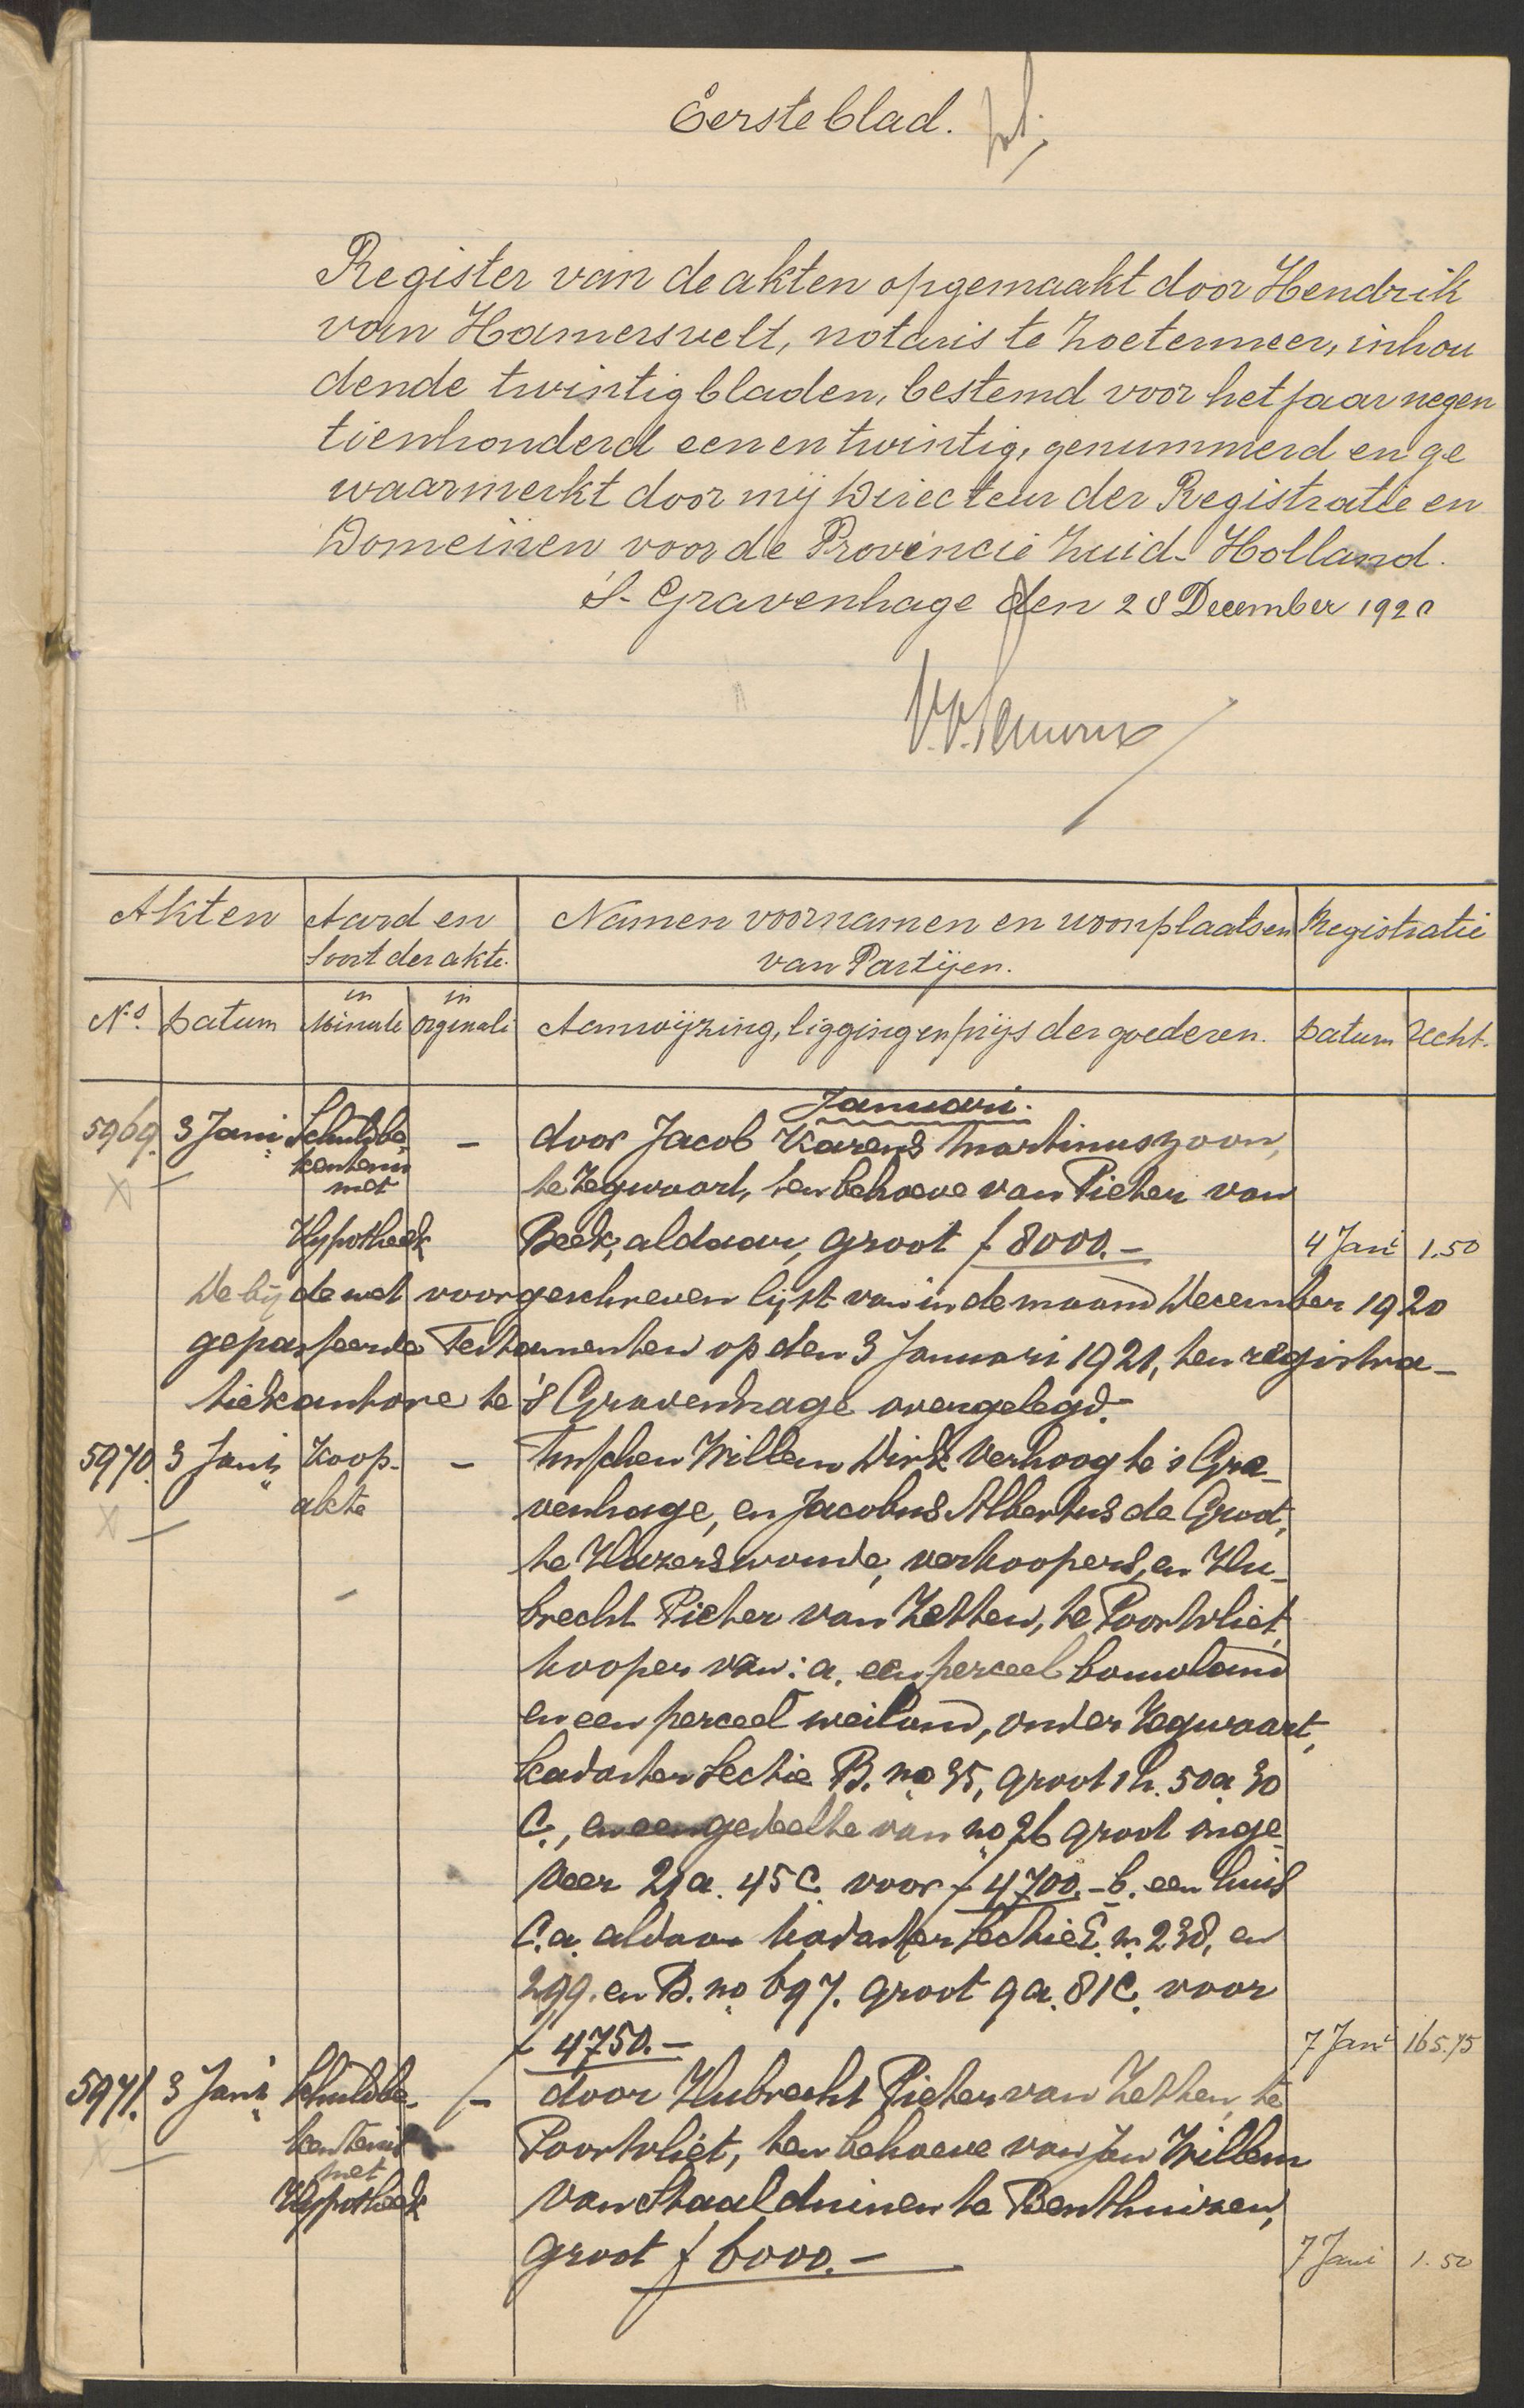 Eerste blad.
Register van de akten opgemaakt door Hendrik
van Hamersvelt, notaris te Zoetermeer, inhou
dende twintig bladen, bestemd voor het jaar negen
tienhonderd een en twintig, genummerd en ge
waarmerkt door mij Directeur der Registratie en
Domeinen voor de Provincie Zuid-Holland.
'S-Gravenhage den 28 December 1920
Akten Aard en Namen voornamen en woonplaatsen Registratie
Soort der akte. van Partijen.
Nos. Datum in Minute in Orginali Aanwijzing, ligging en prijs der goederen. Datum Recht.
Januari.
5969. 3 Jani Schuldbe – door Jacob Karens Martinuszoon,
kentenis
met te Zegwaart, ten behoeve van Pieter van
Hypotheek Beek, aldaar, groot f 8000.– 4 Jani 1.50
De bij de wet voorgeschreven lijst van in de maand December 1920
gepasseerde Testamenten op den 3 Januari 1921, ten registra-
tiekantore te 's Gravenhage overgelegd.–
5970. 3 Jani Koop- – Tusschen Willem Dirk Verhoog te 's Gra-
akte venhage, en Jacobus Albertus de Groot,
te Hazerswoude, verkoopers, en Hu-
brecht Pieter van Zetten, te Poortvliet,
kooper van: a. een perceel bouwland
en een perceel weiland, onder Zegwaart,
kadaster Sectie B. no 35, groot 1 h. 50 a 30
C., en een gedeelte van no 26 groot onge-
veer 21 a. 45 C. voor f 4700.– b. een huis
C.a. aldaar kadaster Sectie E. n. 238, en
299. en B. no 697. groot 9 a. 81 C. voor
f 4750.– 7 Jani 165.75
5971. 3 Jani Schuldbe- – door Hubrecht Pieter van Zetten, te
kentenis Poortvliet, ten behoeve van Jan Willem
met
Hypotheek van Staalduinen te Benthuizen,
groot f 6000.– 7 Jani 1.50